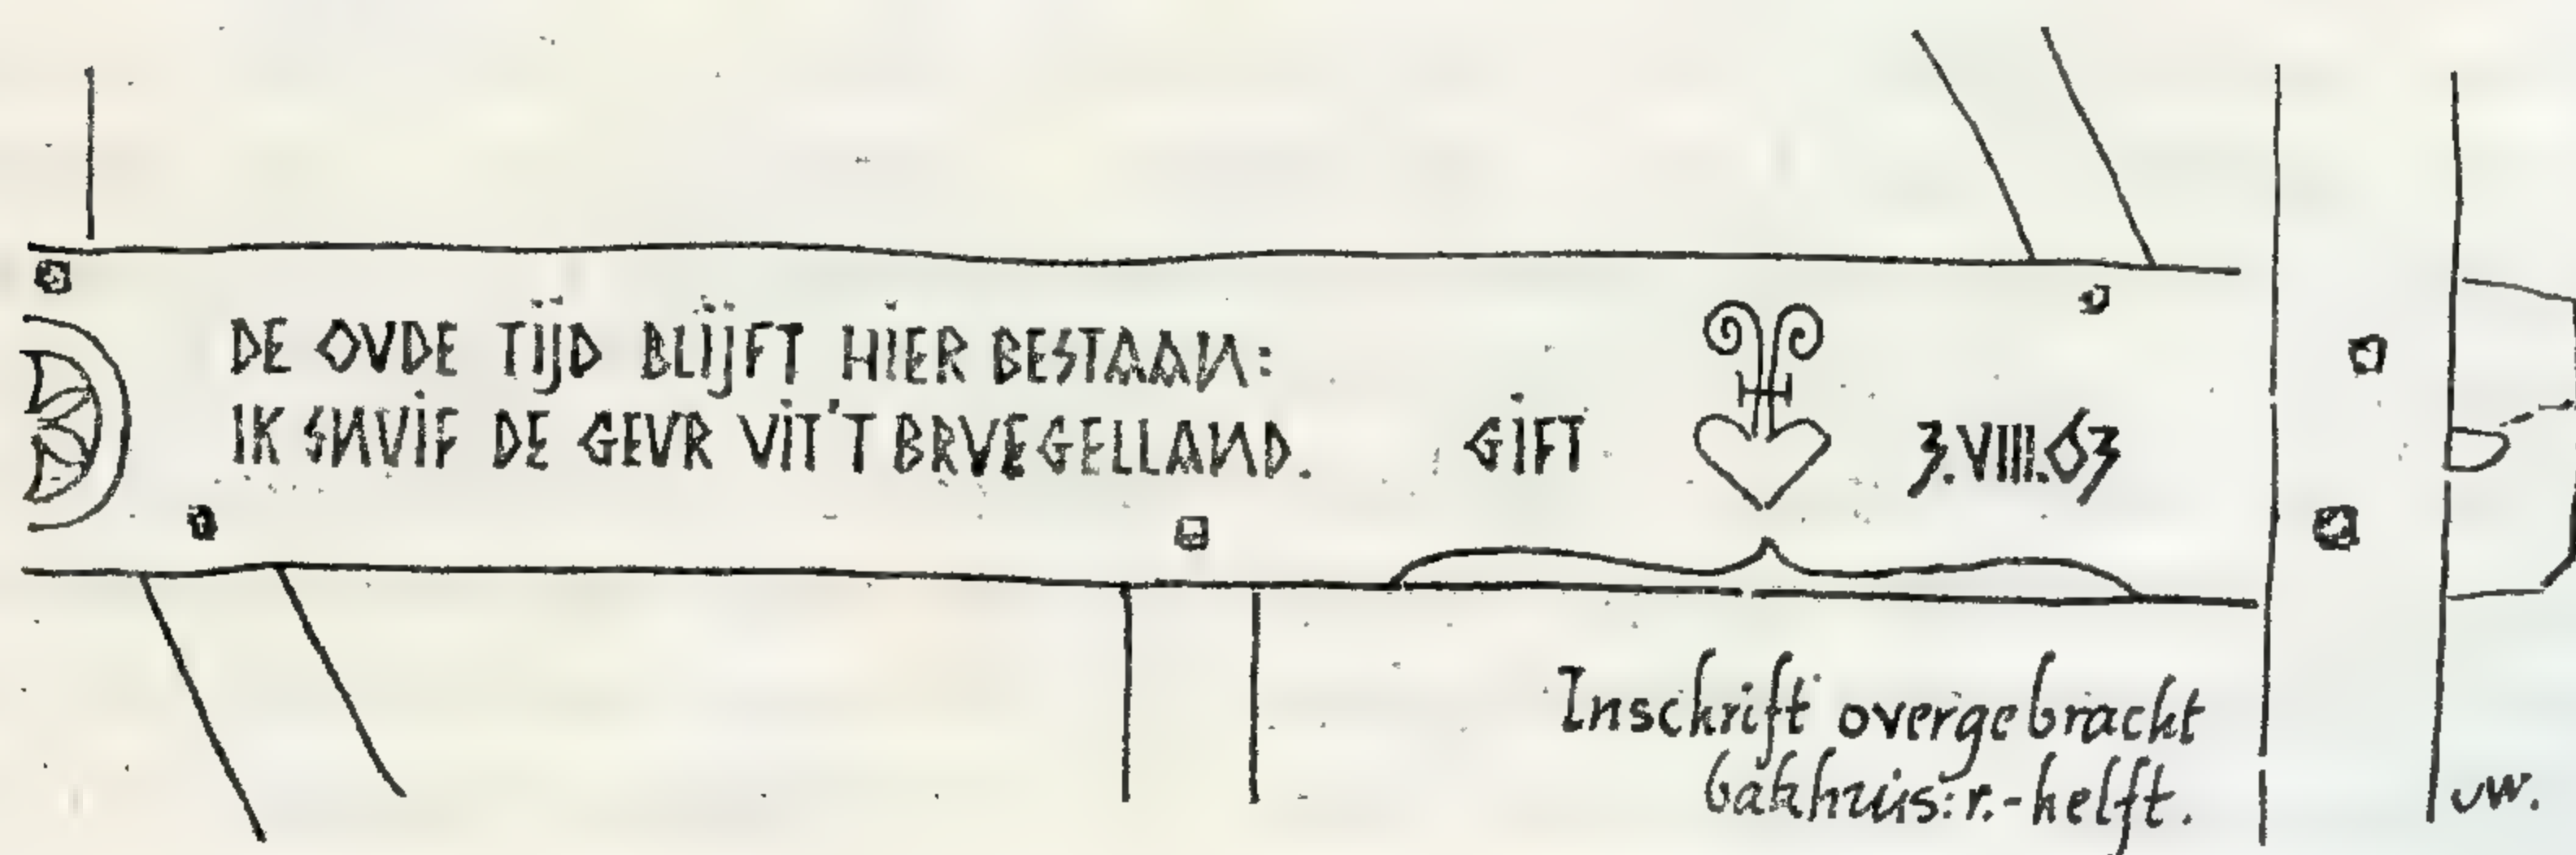 DE OVDE TIJD BLIJFT HIER BESTAAN:
IK SNVIF DE GEVR VIT'T BRVEGELLAND.
GIFT 3.VIII.63
Inschrift overgebracht
bakhuis:r.-helft.
vw.